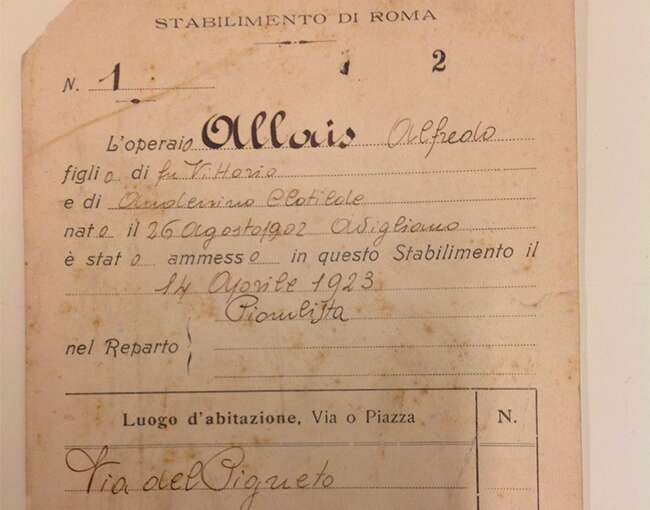 STABILIMENTO DI ROMA
N. 1 1 2
L'operaio Allais Alfredo
figlio di fu Vittorio
e di Anderrino Clotilde
nato il 26 Agosto 1902 Avigliano
è stato ammesso in questo Stabilimento il
14 Aprile 1923
Piombista
nel Reparto
Luogo d'abitazione, Via o Piazza N.
Via del Pigneto